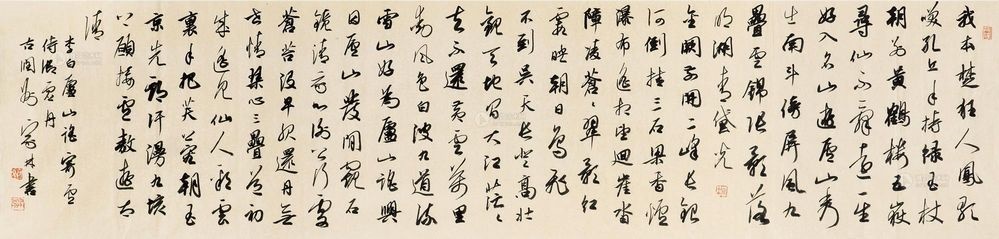 我本楚狂人鳳歌
笑孔丘手持綠玉杖
朝別黃鶴樓五嶽
尋仙不辭遠一生
好入名山遊廬山秀
出南斗傍屏風九
疊雲錦張影落
明湖青黛光
金闕前開二峰長銀
河倒挂三石梁香爐
瀑布遙相望迴崖沓
障凌蒼蒼翠影紅
霞映朝日鳥飛
不到吳天長登高壯
觀天地間大江茫茫
去不還黃雲萬里
動風色白波九道流
雪山好為廬山謠興
因廬山發閒窺石
鏡清我心謝公行處
蒼苔沒早服還丹無
世情琴心三疊道初
成遙見仙人彩雲
裏手把芙蓉朝玉
京先期汗漫九垓
上願接盧敖遊太
清
李白廬山謠寄盧
侍御虛舟
古閩 林書